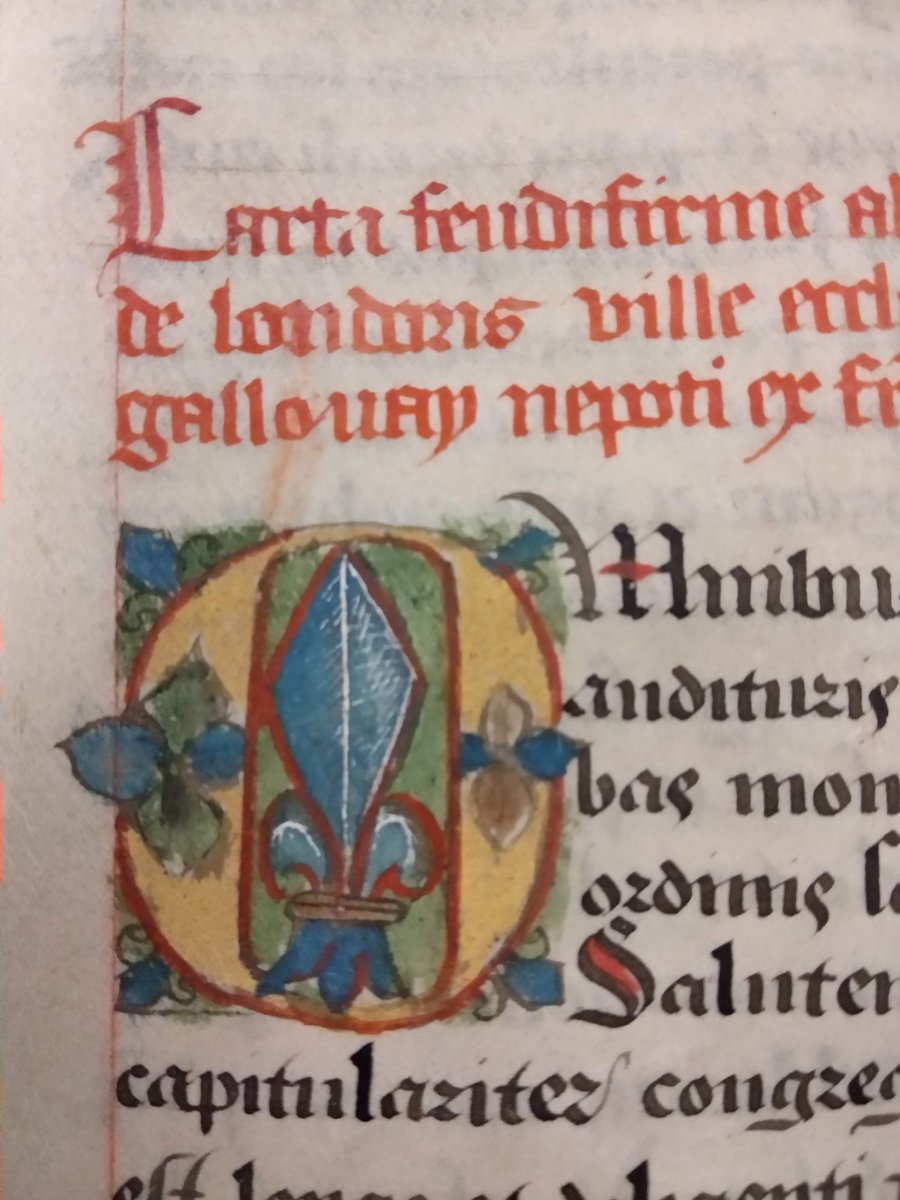 Carta feudifirme al
de londoris ville eccl
gallouay nepoti ex fr
OMnibu
audituris
bas mon
ordinis
Saluten
capitulariter congreg
est longe et diligenti